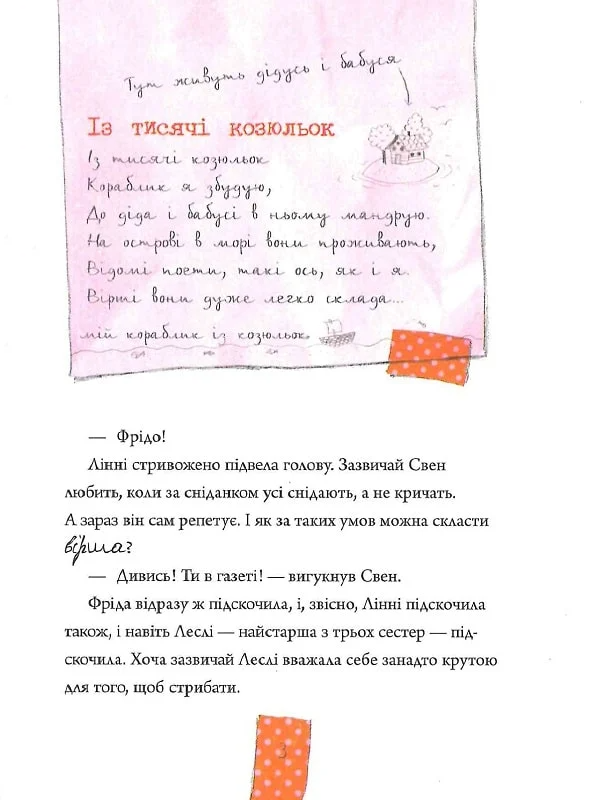 Тут живуть дідусь і бабуся
Із тисячі козюльок
Із тисячі козюльок
Кораблик я збудую,
До діда і бабусі в ньому мандрую.
На острові в морі вони проживають,
Відомі поети, такі ось, як і я.
Вірші вони дуже легко склада...
мій кораблик із козюльок.
— Фрідо!
Лінні стривожено підвела голову. Зазвичай Свен
любить, коли за сніданком усі снідають, а не кричать.
А зараз він сам репетує. І як за таких умов можна скласти
вірша?
— Дивись! Ти в газеті! — вигукнув Свен.
Фріда відразу ж підскочила, і, звісно, Лінні підскочила
також, і навіть Леслі — найстарша з трьох сестер — під-
скочила. Хоча зазвичай Леслі вважала себе занадто крутою
для того, щоб стрибати.
3